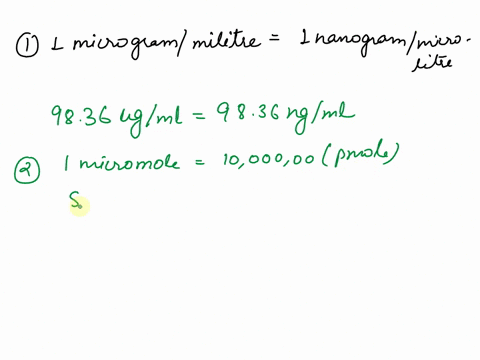 ① 1 microgram/militre = 1 nanogram/micro-
litre
98.36 ug/ml = 98.36 ng/ml
② 1 micromole = 10,000,00 (pmole)
S